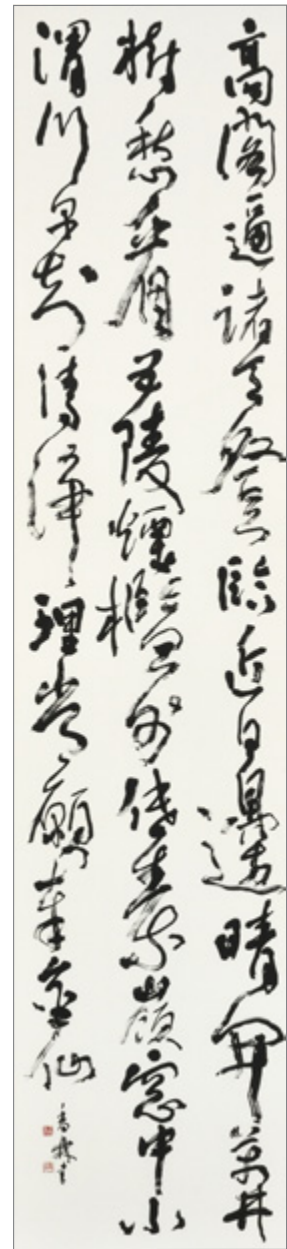 高閣逼諸天登臨近日邊晴開萬井
樹愁看五陵煙檻外低秦嶺窓中小
渭川早知清淨理常願奉金仙